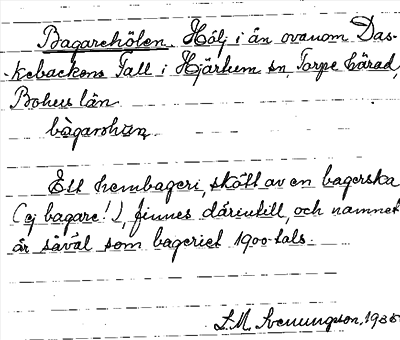 Bagarehölen. Hölj i ån ovanom Das-
kebackens Tall i Hjärtum sn, Torpe härad,
Bohus län
bàgarəhɷ̈lən
Ett hembageri, skött av en bagerska
(ej bagare!), finnes därintill, och namnet
är såväl som bageriet 1900-tals.
L.M. Svenungsson, 1935